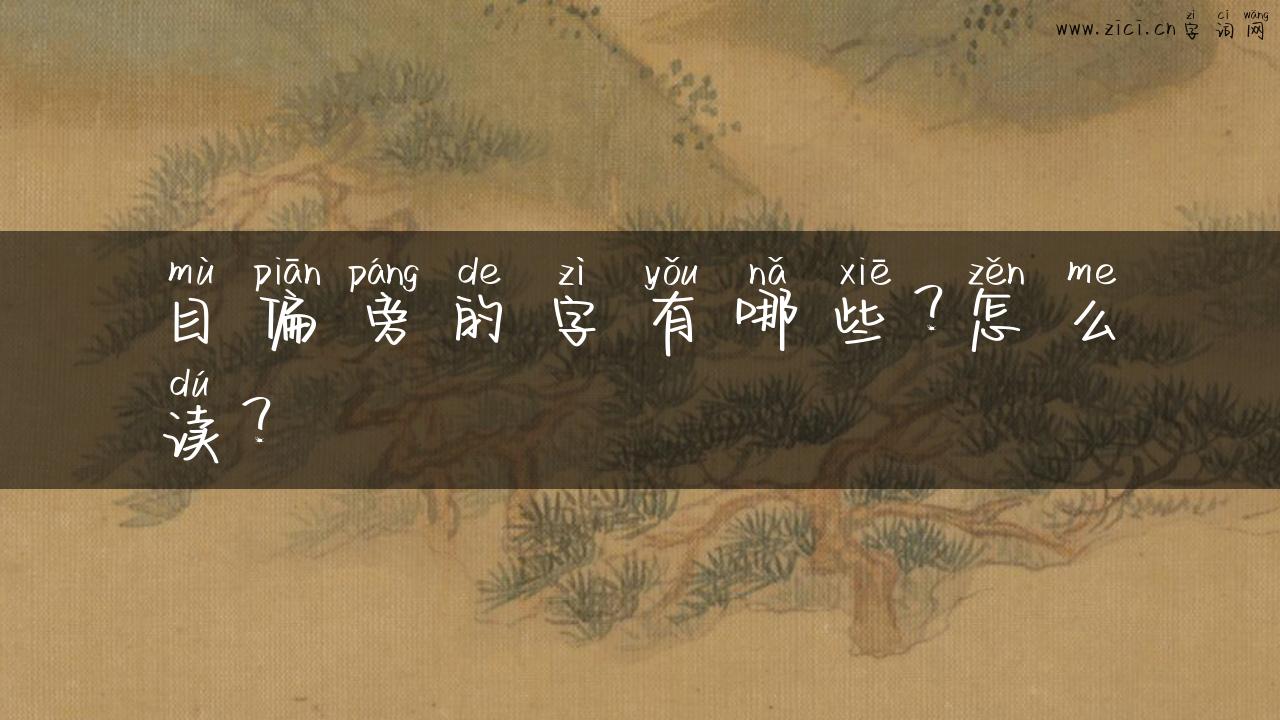 zì cí wǎng
www.zici.cn 字词网
mù piān páng de zì yǒu nǎ xiē zěn me
目偏旁的字有哪些？怎么
dú
读？